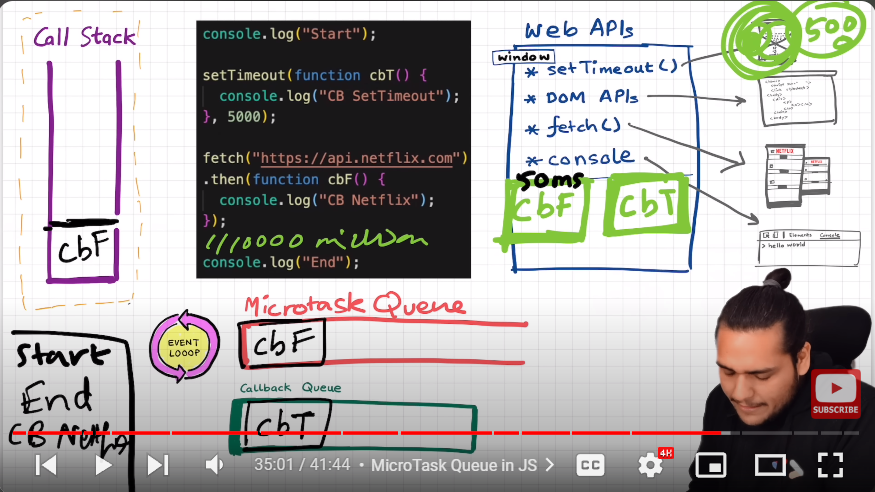 Call Stack
cbF
console.log("Start");
setTimeout(function cbT() {
console.log("CB SetTimeout");
}, 5000);
fetch("https://api.netflix.com")
.then(function cbF() {
console.log("CB Netflix");
});
million
console.log("End");
Web APIs
window
* setTimeout()
* DOM APIs
* fetch()
* console
50ms
cbF
cbT
500
NETFLIX
NETFLIX
Elements Console
> hello world
Microtask Queue
EVENT
LOOOP
cbF
Callback Queue
cbT
Start
End
CB
SUBSCRIBE
35:01 / 41:44 • MicroTask Queue in JS >
CC
4K